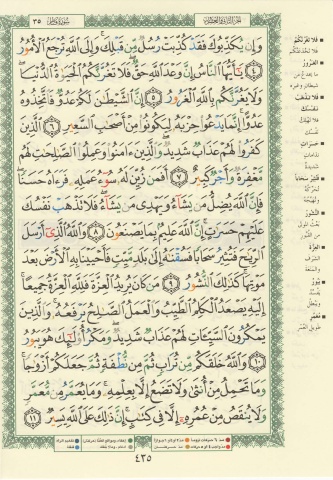 سورة فاطر ٣٥
وَإِن يُكَذِّبُوكَ فَقَدْ كُذِّبَتْ رُسُلٌ مِّن قَبْلِكَ وَإِلَى اللَّهِ تُرْجَعُ الْأُمُورُ
٤ يَا أَيُّهَا النَّاسُ إِنَّ وَعْدَ اللَّهِ حَقٌّ فَلَا تَغُرَّنَّكُمُ الْحَيَاةُ الدُّنْيَا
وَلَا يَغُرَّنَّكُم بِاللَّهِ الْغَرُورُ ٥ إِنَّ الشَّيْطَانَ لَكُمْ عَدُوٌّ فَاتَّخِذُوهُ
عَدُوًّا إِنَّمَا يَدْعُو حِزْبَهُ لِيَكُونُوا مِنْ أَصْحَابِ السَّعِيرِ ٦ الَّذِينَ
كَفَرُوا لَهُمْ عَذَابٌ شَدِيدٌ وَالَّذِينَ آمَنُوا وَعَمِلُوا الصَّالِحَاتِ لَهُم
مَّغْفِرَةٌ وَأَجْرٌ كَبِيرٌ ٧ أَفَمَن زُيِّنَ لَهُ سُوءُ عَمَلِهِ فَرَآهُ حَسَنًا
فَإِنَّ اللَّهَ يُضِلُّ مَن يَشَاءُ وَيَهْدِي مَن يَشَاءُ فَلَا تَذْهَبْ نَفْسُكَ
عَلَيْهِمْ حَسَرَاتٍ إِنَّ اللَّهَ عَلِيمٌ بِمَا يَصْنَعُونَ ٨ وَاللَّهُ الَّذِي أَرْسَلَ
الرِّيَاحَ فَتُثِيرُ سَحَابًا فَسُقْنَاهُ إِلَى بَلَدٍ مَّيِّتٍ فَأَحْيَيْنَا بِهِ الْأَرْضَ بَعْدَ
مَوْتِهَا كَذَلِكَ النُّشُورُ ٩ مَن كَانَ يُرِيدُ الْعِزَّةَ فَلِلَّهِ الْعِزَّةُ جَمِيعًا
إِلَيْهِ يَصْعَدُ الْكَلِمُ الطَّيِّبُ وَالْعَمَلُ الصَّالِحُ يَرْفَعُهُ وَالَّذِينَ
يَمْكُرُونَ السَّيِّئَاتِ لَهُمْ عَذَابٌ شَدِيدٌ وَمَكْرُ أُولَئِكَ هُوَ يَبُورُ
١٠ وَاللَّهُ خَلَقَكُم مِّن تُرَابٍ ثُمَّ مِن نُّطْفَةٍ ثُمَّ جَعَلَكُمْ أَزْوَاجًا
وَمَا تَحْمِلُ مِنْ أُنثَى وَلَا تَضَعُ إِلَّا بِعِلْمِهِ وَمَا يُعَمَّرُ مِن مُّعَمَّرٍ
وَلَا يُنقَصُ مِنْ عُمُرِهِ إِلَّا فِي كِتَابٍ إِنَّ ذَلِكَ عَلَى اللَّهِ يَسِيرٌ ١١
٤٣٥
فلا تغرنكم
الغرور
فلا تذهب
نفسك
حسرات
فتثير سحابا
النشور
العزة
يبور
معمر